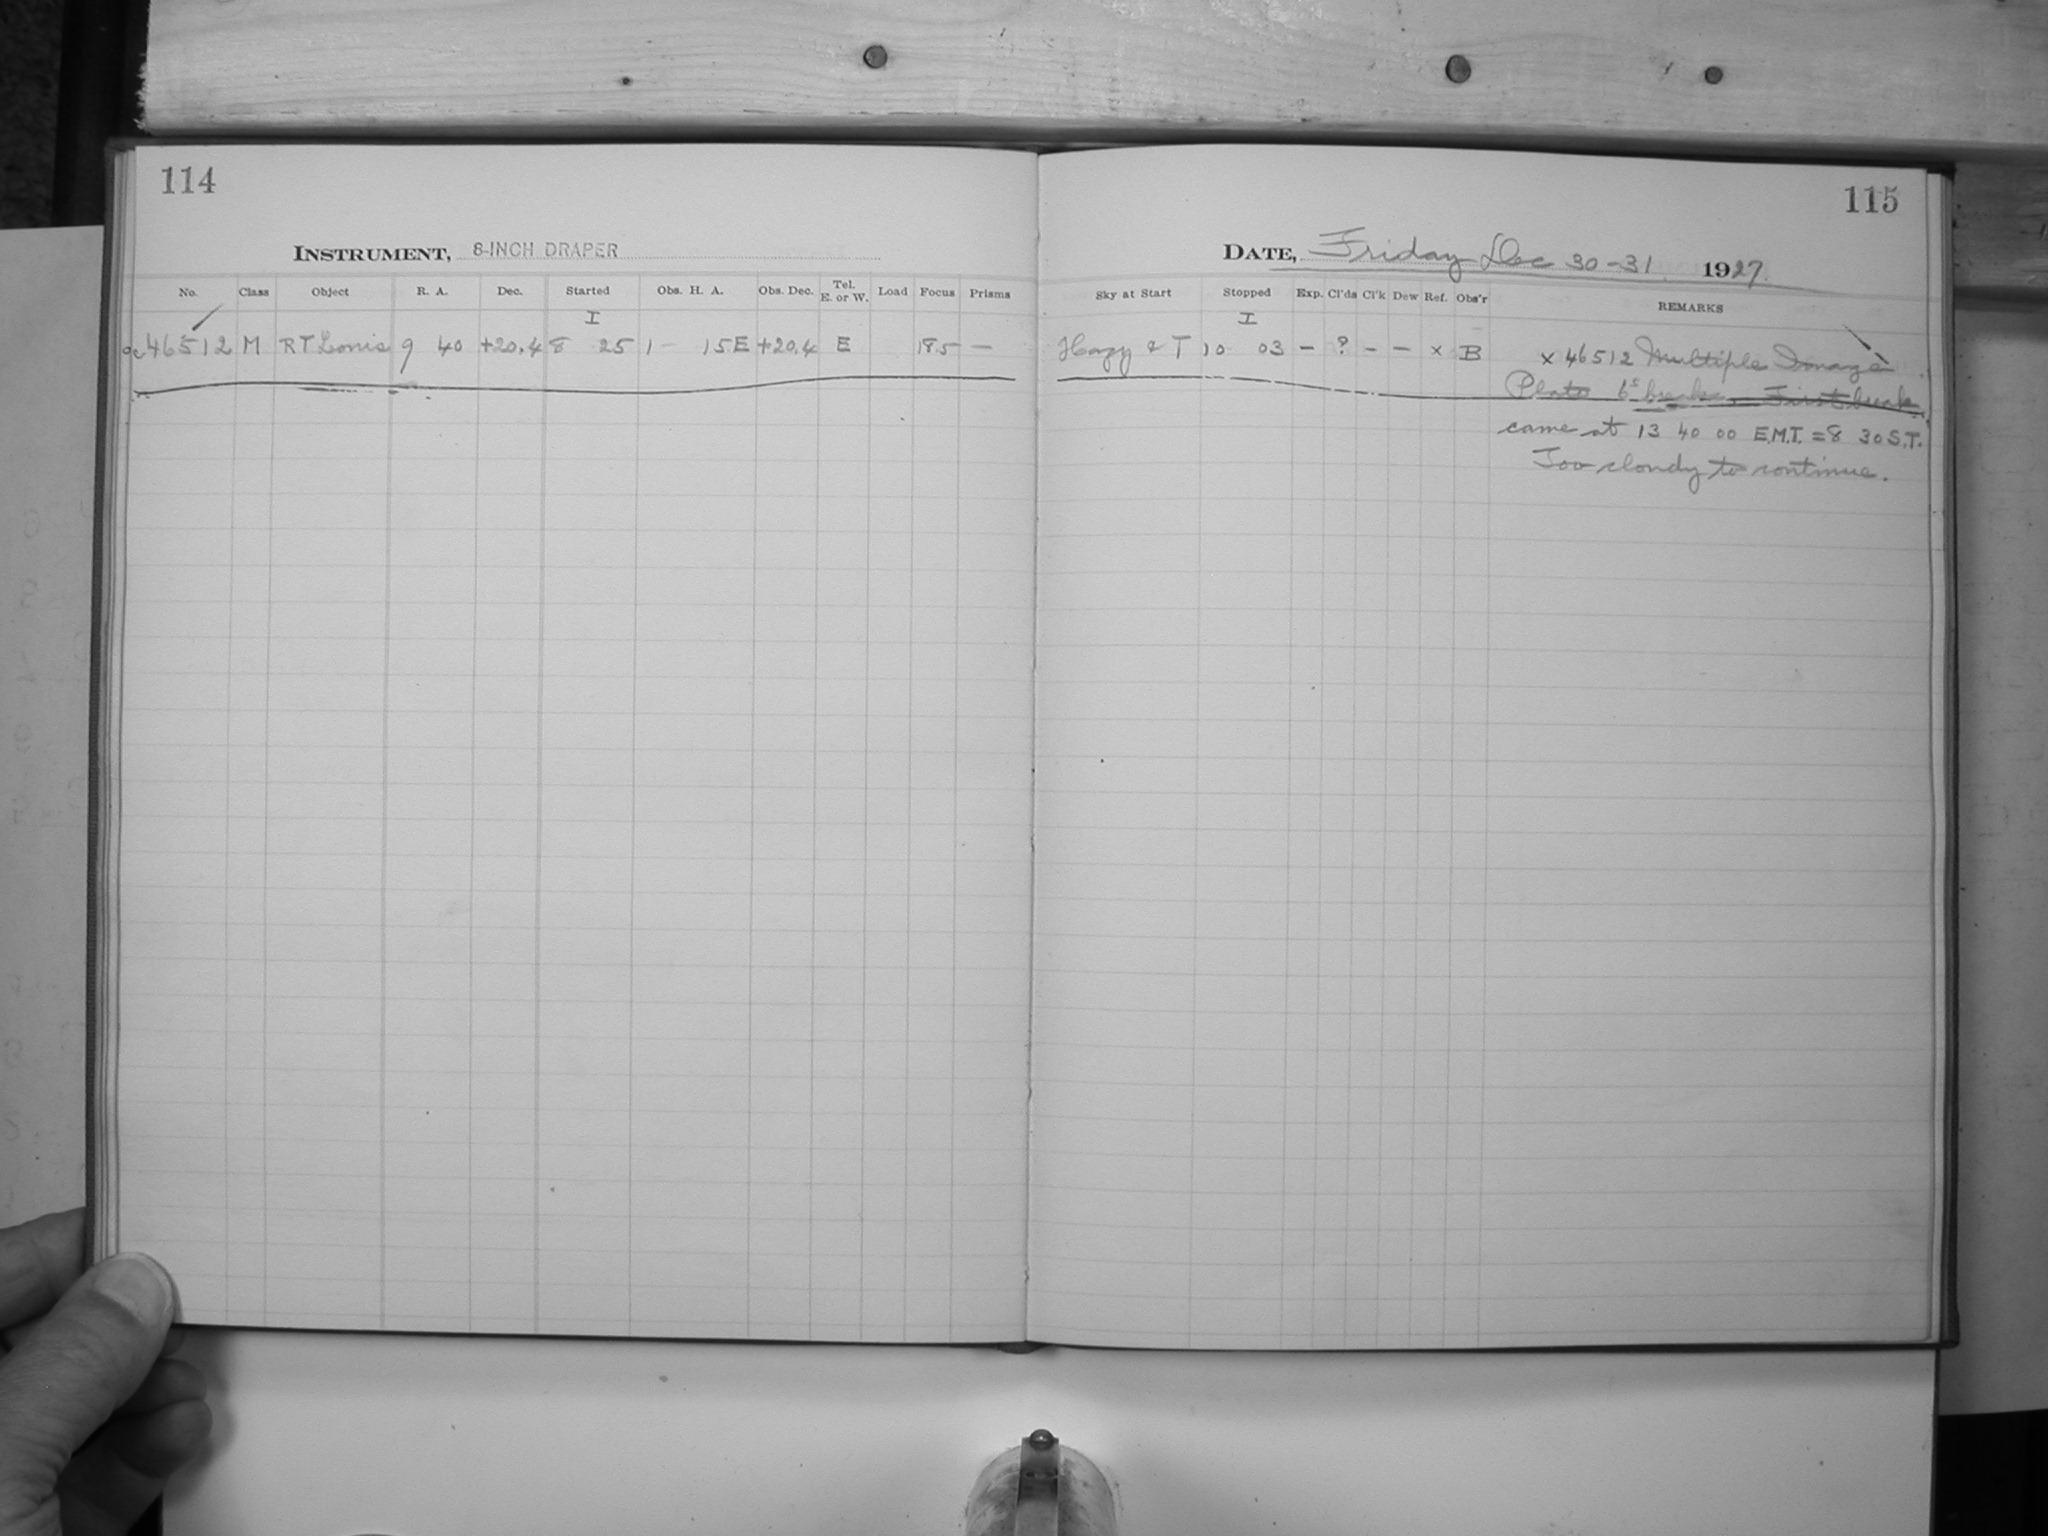 114
115
INSTRUMENT, 8-INCH DRAPER
DATE, Friday Dec 30-31 1927.
No. Class Object R. A. Dec. Started Obs. H. A. Obs. Dec. Tel. E. or W. Load Focus Prisms
Sky at Start Stopped Exp. Cl'ds Cl'k Dew Ref. Obs'r REMARKS
I
I
46512 M RT Leonis 9 40 +20.4 8 25 1- 15E +20.4 E 185 —
Hazy & T 10 03 - ? - - x B
x 46512 Multiple Image
Plate 6 breaks. First break
came at 13 40 00 E.M.T. = 8 30 S.T.
Too cloudy to continue.